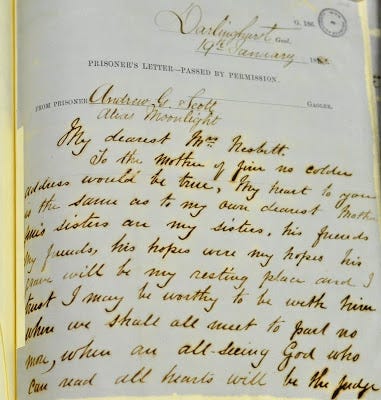 Darlinghurst
G. 186.
Gaol.
19th January 188
PRISONER'S LETTER—PASSED BY PERMISSION.
FROM PRISONER Andrew G. Scott GAOLER.
alias Moonlight
My dearest Mrs Nesbitt.
To the mother of Jim no colder
address would be true, My heart to you
is the same as to my own dearest Mother
Jim's sisters are my sisters, his friends
my friends, his hopes were my hopes his
grave will be my resting place and I
trust I may be worthy to be with him
when we shall all meet to part no
more, when an all-seeing God who
can read all hearts will be the judge